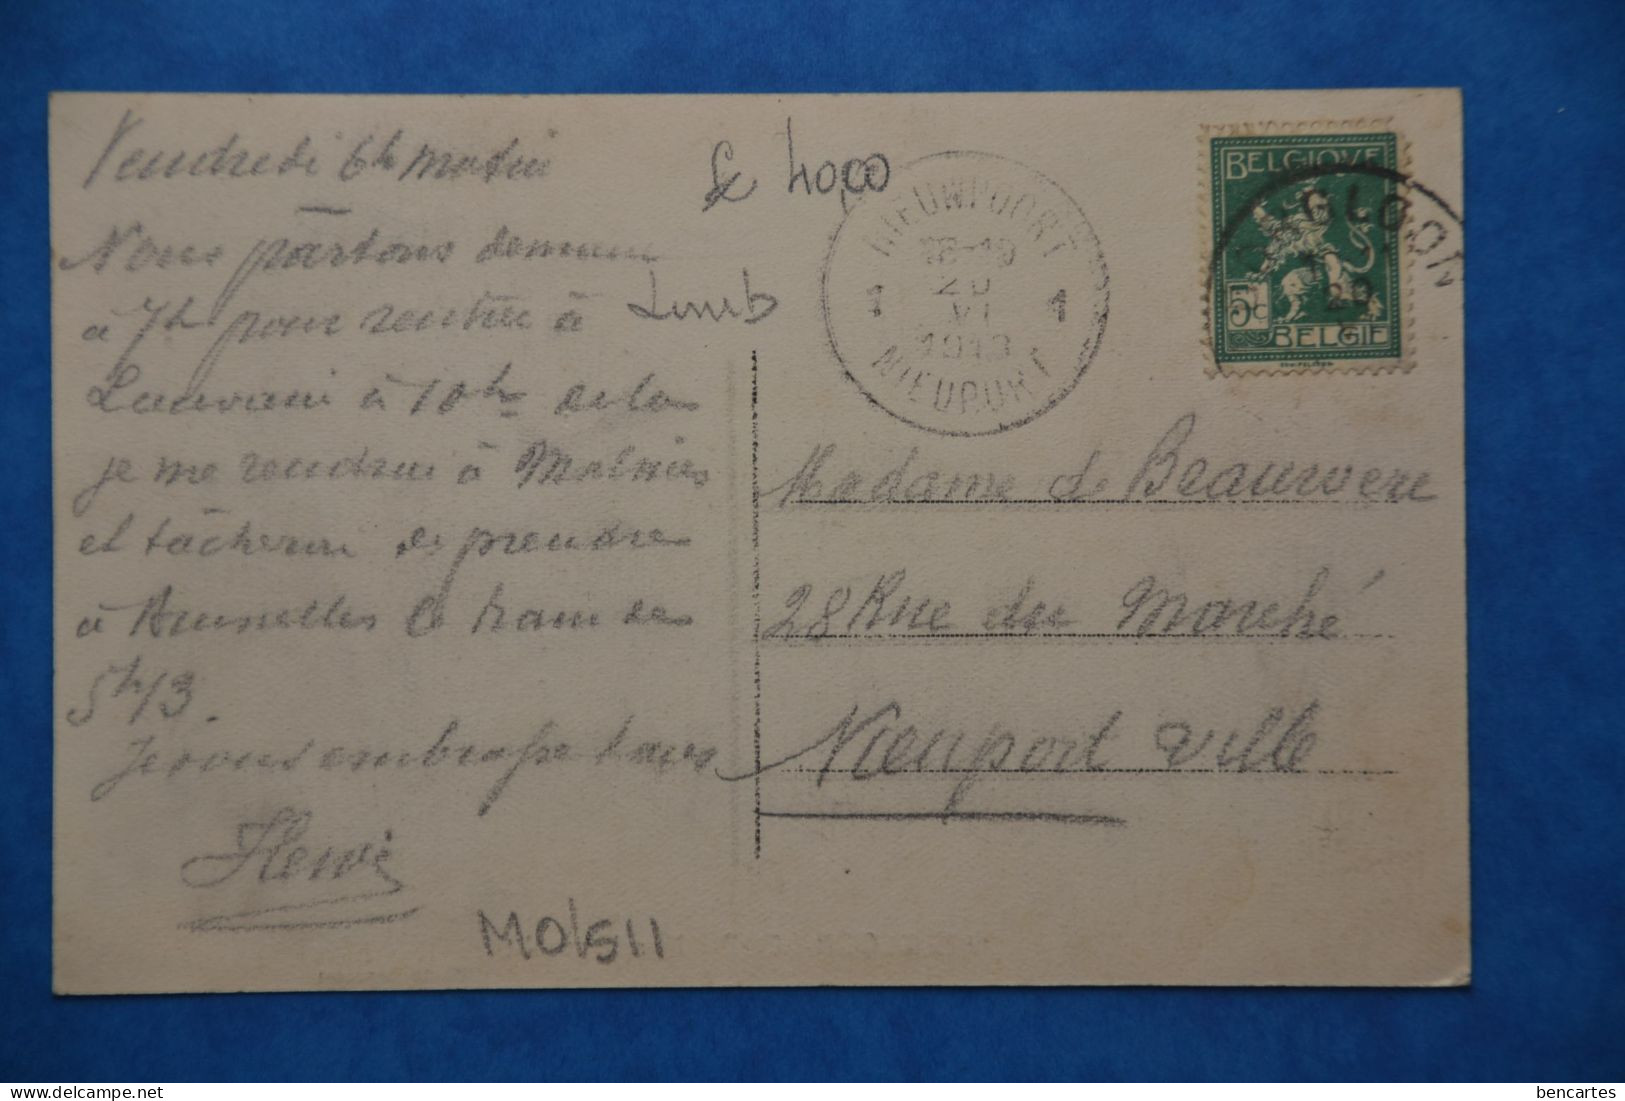 Vendredi 6h matin
Nous partons demain
à 7h pour rentrer à
Louvain à 10h de là
je me rendrai à Malines
et tâcherai de prendre
à Bruxelles le train de
5h13.
Je vous embrasse tous
Henri
MO/511
£ 40,00
Limb
NIEUWPOORT
18-19
VI
1913
1 1
NIEUPORT
BELGIQUE
5c
BELGIE
LOON
20
Madame de Beauwere
28 Rue du Marché
Nieuport ville
bencartes